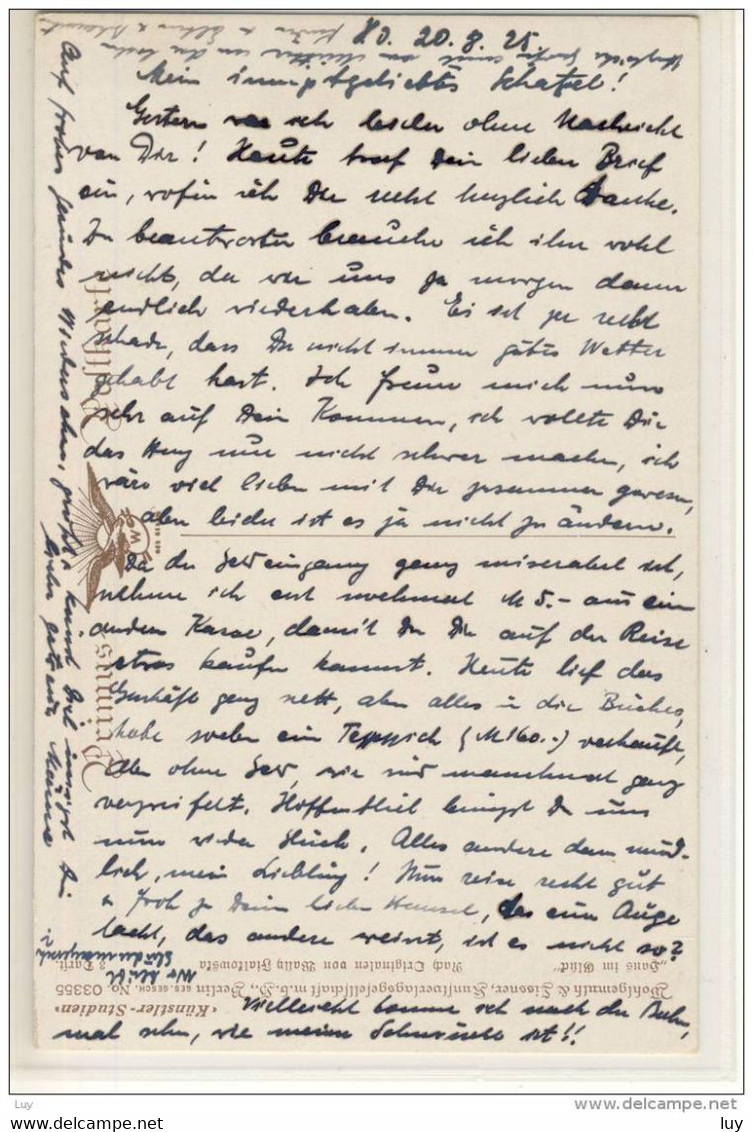 20.8.25
Mein innigstgeliebtes Schatzel!
Gestern war ich leider ohne Nachricht
von Dir! Heute traf Dein lieber Brief
ein, wofür ich Dir recht herzlich Danke.
Zu beantworten brauche ich ihn wohl
nicht, da wir uns ja morgen dann
endlich wiederhaben. Es ist ja recht
schade, dass Du nicht immer gutes Wetter
gehabt hast. Ich freue mich nun
sehr auf Dein Kommen, ich wollte Dir
das Herz nur nicht schwer machen, ich
wäre viel lieber mit Dir zusammen gewesen,
aber leider ist es ja nicht zu ändern.
Da der Geldeingang ganz miserabel ist,
nehme ich erst nochmal M 5.- aus ein
andern Kasse, damit Du Dir auf der Reise
etwas kaufen kannst. Heute lief das
Geschäft ganz nett, aber alles in die Bücher,
habe soeben ein Teppich (M 160.-) verkauft,
aber ohne Geld, wir sind manchmal ganz
verzweifelt. Hoffentlich bringst Du uns
nun wieder Glück. Alles andere dann münd-
lich, mein Liebling! Nun reise recht gut
u froh zu Deinem lieben Hansel, das eine Auge
lacht, das andere weint, ist es nicht so?
Vielleicht komme ich nach der Bahn,
mal sehn, wie meine Sehnsucht ist!!
Auf frohes gesundes Wiedersehen, grüßt u. küsst Dich innigst Dein
"Hans im Glück"
Nach Originalen von Wally Fialkowska
Wohlgemuth & Lissner, Kunstverlagsgesellschaft m.b.H., Berlin
"Künstler-Studien" GES. GESCH. No. 03355
Luy
© delcampe.net
luy